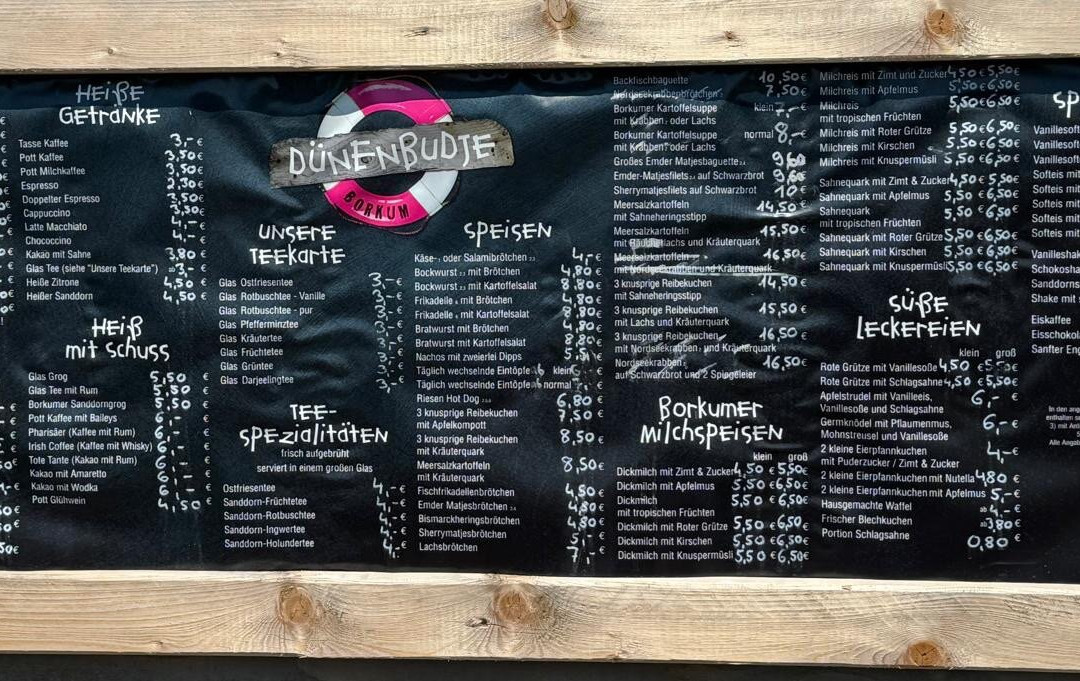 HEIßE
GETRÄNKE
Tasse Kaffee 3,- €
Pott Kaffee 3,50 €
Pott Milchkaffee 3,50 €
Espresso 2,30 €
Doppelter Espresso 3,50 €
Cappuccino 3,50 €
Latte Macchiato 4,- €
Chococcino 4,- €
Kakao mit Sahne 3,80 €
Glas Tee (siehe "Unsere Teekarte") ab 3,- €
Heiße Zitrone 4,50 €
Heißer Sanddorn 4,50 €
HEIß
mit SCHUSS
Glas Grog 5,50 €
Glas Tee mit Rum 5,50 €
Borkumer Sanddorngrog 5,50 €
Pott Kaffee mit Baileys 6,- €
Pharisäer (Kaffee mit Rum) 6,- €
Irish Coffee (Kaffee mit Whisky) 6,- €
Tote Tante (Kakao mit Rum) 6,- €
Kakao mit Amaretto 6,- €
Kakao mit Wodka 6,- €
Pott Glühwein 4,50 €
DÜNENBUDJE
BORKUM
UNSERE
TEEKARTE
Glas Ostfriesentee 3,- €
Glas Rotbuschtee - Vanille 3,- €
Glas Rotbuschtee - pur 3,- €
Glas Pfefferminztee 3,- €
Glas Kräutertee 3,- €
Glas Früchtetee 3,- €
Glas Grüntee 3,- €
Glas Darjeelingtee 3,- €
TEE-
SPEZIALITÄTEN
frisch aufgebrüht
serviert in einem großen Glas
Ostfriesentee 4,- €
Sanddorn-Früchtetee 4,- €
Sanddorn-Rotbuschtee 4,- €
Sanddorn-Ingwertee 4,- €
Sanddorn-Holundertee 4,- €
SPEISEN
Käse- oder Salamibrötchen 4,- €
Bockwurst mit Brötchen 4,80 €
Bockwurst mit Kartoffelsalat 8,80 €
Frikadelle mit Brötchen 4,80 €
Frikadelle mit Kartoffelsalat 8,80 €
Bratwurst mit Brötchen 4,80 €
Bratwurst mit Kartoffelsalat 8,80 €
Nachos mit zweierlei Dipps
Täglich wechselnde Eintöpfe ab klein
Täglich wechselnde Eintöpfe ab normal
Riesen Hot Dog 6,80 €
3 knusprige Reibekuchen 7,50 €
mit Apfelkompott
3 knusprige Reibekuchen 8,50 €
mit Kräuterquark
Meersalzkartoffeln 8,50 €
mit Kräuterquark
Fischfrikadellenbrötchen 4,50 €
Emder Matjesbrötchen 4,80 €
Bismarckheringsbrötchen 4,80 €
Sherrymatjesbrötchen 5,- €
Lachsbrötchen 7,- €
Backfischbaguette 10,50 €
Nordseekrabbenbrötchen 7,50 €
Borkumer Kartoffelsuppe klein 7,- €
mit Krabben oder Lachs
Borkumer Kartoffelsuppe normal 8,- €
mit Krabben oder Lachs
Großes Emder Matjesbaguette
Emder-Matjesfilets auf Schwarzbrot
Sherrymatjesfilets auf Schwarzbrot 10 €
Meersalzkartoffeln 14,50 €
mit Sahneheringsstipp
Meersalzkartoffeln 15,50 €
mit Räucherlachs und Kräuterquark
Meersalzkartoffeln 16,50 €
mit Nordseekrabben und Kräuterquark
3 knusprige Reibekuchen 14,50 €
mit Sahneheringsstipp
3 knusprige Reibekuchen 15,50 €
mit Lachs und Kräuterquark
3 knusprige Reibekuchen 16,50 €
mit Nordseekrabben und Kräuterquark
Nordseekrabben 16,50 €
auf Schwarzbrot und 2 Spiegeleier
BORKUMER
MILCHSPEISEN
klein groß
Dickmilch mit Zimt & Zucker 4,50 € 5,50 €
Dickmilch mit Apfelmus 5,50 € 6,50 €
Dickmilch 5,50 € 6,50 €
mit tropischen Früchten
Dickmilch mit Roter Grütze 5,50 € 6,50 €
Dickmilch mit Kirschen 5,50 € 6,50 €
Dickmilch mit Knuspermüsli 5,50 € 6,50 €
Milchreis mit Zimt und Zucker 4,50 € 5,50 €
Milchreis mit Apfelmus 5,50 € 6,50 €
Milchreis 5,50 € 6,50 €
mit tropischen Früchten
Milchreis mit Roter Grütze 5,50 € 6,50 €
Milchreis mit Kirschen 5,50 € 6,50 €
Milchreis mit Knuspermüsli 5,50 € 6,50 €
Sahnequark mit Zimt & Zucker 4,50 € 5,50 €
Sahnequark mit Apfelmus 5,50 € 6,50 €
Sahnequark 5,50 € 6,50 €
mit tropischen Früchten
Sahnequark mit Roter Grütze 5,50 € 6,50 €
Sahnequark mit Kirschen 5,50 € 6,50 €
Sahnequark mit Knuspermüsli 5,50 € 6,50 €
SÜßE
LECKEREIEN
klein groß
Rote Grütze mit Vanillesoße 4,50 € 5,50 €
Rote Grütze mit Schlagsahne 4,50 € 5,50 €
Apfelstrudel mit Vanilleeis, 6,- €
Vanillesoße und Schlagsahne
Germknödel mit Pflaumenmus, 6,- €
Mohnstreusel und Vanillesoße
2 kleine Eierpfannkuchen 4,- €
mit Puderzucker / Zimt & Zucker
2 kleine Eierpfannkuchen mit Nutella 4,80 €
2 kleine Eierpfannkuchen mit Apfelmus 5,- €
Hausgemachte Waffel ab 4,- €
Frischer Blechkuchen ab 3,80 €
Portion Schlagsahne 0,80 €
SP
Vanillesoft
Vanillesoft
Vanillesoft
Softeis mit
Softeis mit
Softeis mit
Softeis mit
Softeis mit
Vanillemilch
Schokosha
Sanddorns
Shake mit
Eiskaffee
Eisschokol
Sanfter Eng